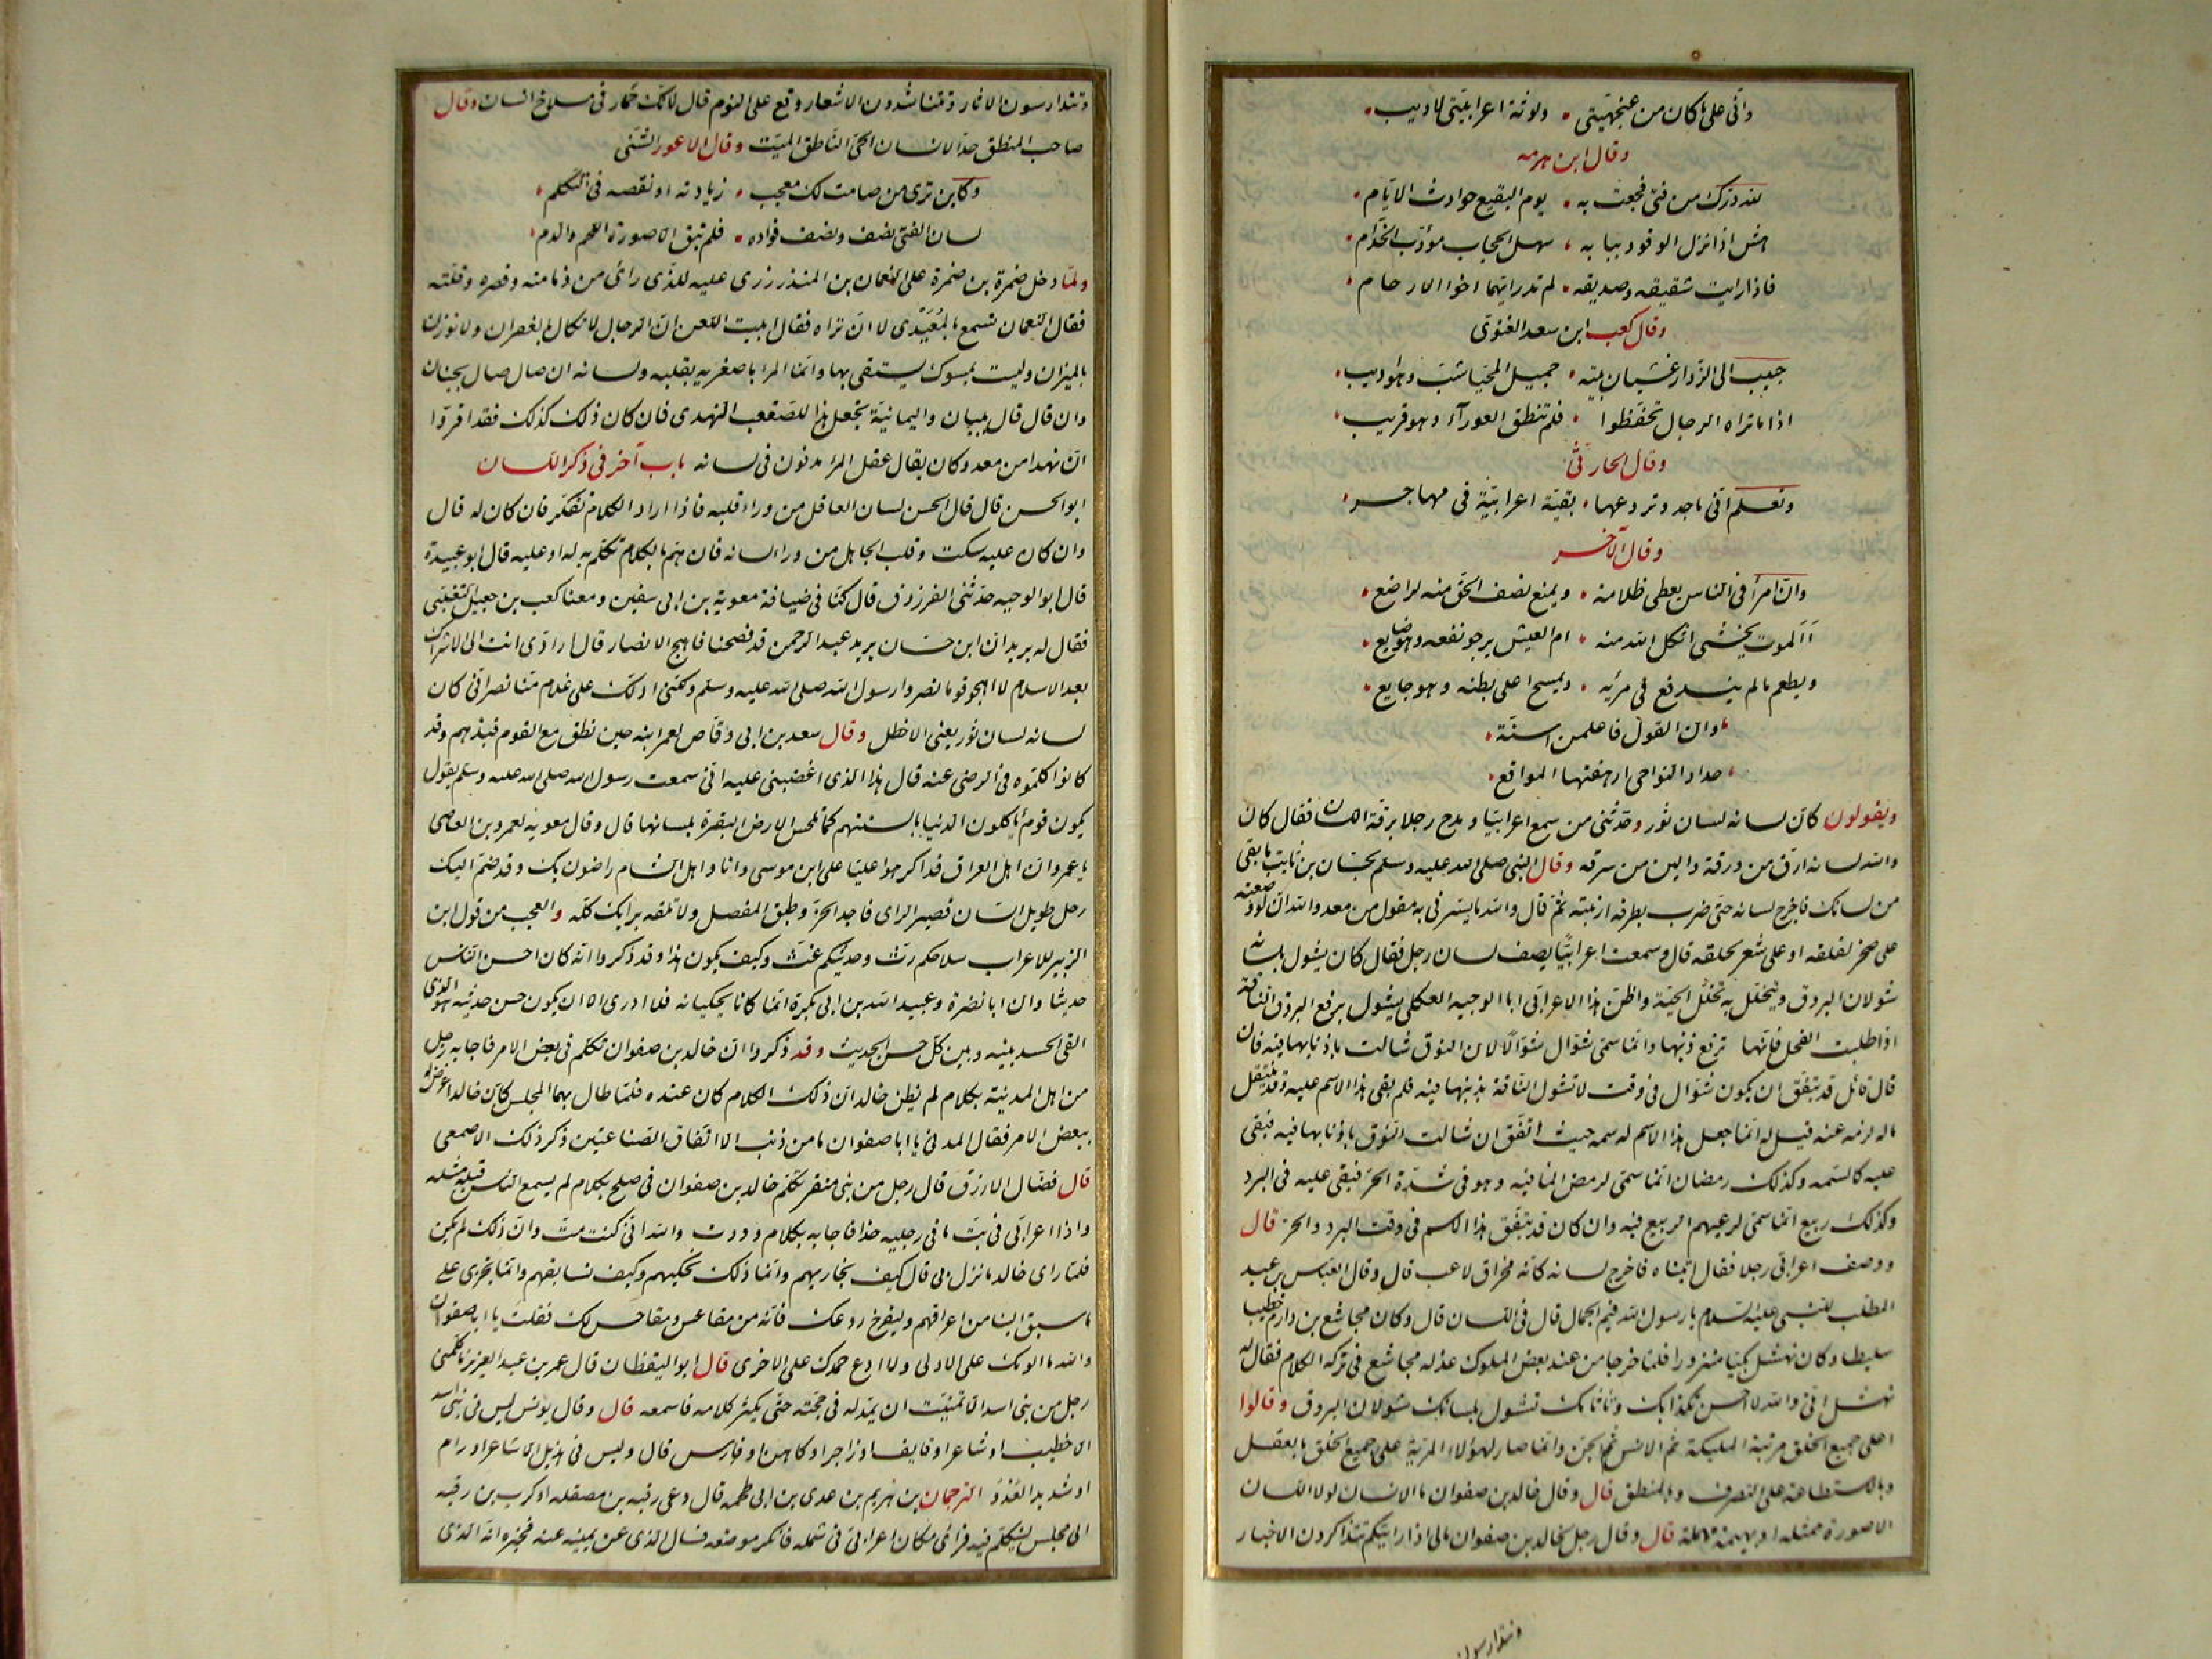 وانّى على ما كان من عنجهيّتى ولوثة اعرابيّتى لاديب
وقال ابن هرمه
لله درّك من فتى فجعت به يوم البقيع حوادث الايّام
هش اذا نزل الوفود ببابه سهل الحجاب مؤدّب الخدّام
فاذا رايت شقيقه وصديقه لم تدر ايّهما اخوا الارحام
وقال كعب ابن سعد الغنوى
حبيب الى الزوار غشيان بيته جميل المحيا شبّ وهو اديب
اذا ما تراه الرجال تحفّظوا فلم تنطق العورآء وهو قريب
وقال الحارثى
وتعلم انّى ماجد وتروعها بقيّة اعرابيّة فى مهاجر
وقال الآخر
وانّ امرأ فى الناس يعطى ظلامة ويمنع نصف الحق منه لراضع
أالموت يخشى اثكل الله امه ام العيش يرجو نفعه وهو ضايع
ويطعم ما لم يندفع فى مريه ويمسح اعلى بطنه وهو جايع
وان القول فاعلمن اسنّة
حداد النواحى ارهفتها المواقع
ويقولون كانّ لسانه لسان ثور وحدّثنى من سمع اعرابيّا ويمدح رجلا برقّة اللسان فقال كان
والله لسانه ارق من ورقة والين من سرقه وقال النبى صلى الله عليه وسلم لحسّان بن ثابت ما بقى
من لسانك فاخرج لسانه حتى ضرب بطرفه ارنبته ثمّ قال والله ما يسرّنى به مقول من معد والله ان لو وضعته
على صخر لفلقه او على شعر لحلقه قال وسمعت اعرابيّا يصف لسان رجل فقال كان يشول بلسانه
شولان البروق ويتخلّل به تخلّل الحيّة واظن هذا الاعرابى ابا الوجيه العكلى يشول يرفع البروق الناقة
اذا طلبت الفحل فانّها ترفع ذنبها وانّما سمّى شوّال شوّالا لان النوق شالت باذنابها فيه فان
قال قائل قد يتفق ان يكون شوّال فى وقت لا تشول الناقة بذنبها فيه فلم بقى هذا الاسم عليه وقد ينتقل
ما له لزمه عنه قيل له انّما جعل هذا الاسم له سمه حيث اتفق ان شالت النوق باذنابها فيه فبقى
عليه كالسمه وكذلك رمضان انّما سمّى لرمض الما فيه وهو فى شدّة الحرّ فبقى عليه فى البرد
وكذلك ربيع انّما سمّى لرعيهم الربيع فيه وان كان قد يتفق هذا الاسم فى وقت البرد والحرّ قال
ووصف اعرابى رجلا فقال اتيناه فاخرج لسانه كانّه مخراق لاعب قال وقال العبّاس بن عبد
المطّلب للنبى عليه السلام يا رسول الله فيم الجمال قال فى اللسان قال وكان مجاشع بن دارم خطيبا
سليطا وكان نهشل بكيّا منزورا فلمّا خرجا من عند بعض الملوك عذله مجاشع فى تركه الكلام فقال له
نهشل انّى والله لا احسن تكذابك وتاثامك تشول بلسانك شولان البروق وقالوا
اعلى جميع الخلق مرتبة الملئكة ثم الانس ثم الجن وانّما صار لهؤلاء المزيّة على جميع الخلق بالعقل
وبالاستطاعة على التصرف وبالمنطق قال وقال خالد بن صفوان ما الانسان لولا اللسان
الا صورة ممثله او بهيمة مهملة قال وقال رجل لخالد بن صفوان مالى اذا رايتكم تتذاكرون الاخبار
وتتدارسون
وتتدارسون الاثار وتتناشدون الاشعار وقع على النوم قال لانّك حمار فى مسلاخ انسان وقال
صاحب المنطق حدّ الانسان الحىّ الناطق الميّت وقال الاعور الشنّى
وكاين ترى من صامت لك معجب زيادته او نقصه فى التكلم
لسان الفتى نصف ونصف فواده فلم تبق الا صورة اللحم والدم
ولمّا دخل ضمرة بن ضمرة على النعمان بن المنذر زرى عليه للذى راى من ذمامته وقصره وقلّته
فقال النعمان تسمع بالمعيدى لا ان تراه فقال ابيت اللعن انّ الرجال لا تكال بالقفزان ولا توزن
بالميزان وليست بمسوك يستقى بها وانّما المرا باصغريه بقلبه ولسانه ان صال صال بجنان
وان قال قال ببيان واليمانيّة تجعل هذا للصقعب النهدى فان كان ذلك كذلك فقد اقروا
انّ نهدا من معد وكان يقال عقل المرأ مدفون فى لسانه باب آخر فى ذكر اللسان
ابو الحسن قال قال الحسن لسان العاقل من وراء قلبه فاذا اراد الكلام تفكّر فان كان له قال
وان كان عليه سكت وقلب الجاهل من وراء لسانه فان همّ بالكلام تكلم به له او عليه قال ابو عبيدة
قال ابو الوجيه حدّثنى الفرزدق قال كنّا فى ضيافة معوية بن ابى سفين ومعنا كعب بن جعيل التغلبى
فقال له يزيد ان ابن حسّان يريد عبد الرحمن قد فضحنا فاهج الانصار قال ارادّى انت الى الاشراك
بعد الاسلام لا اهجو قوما نصروا رسول الله صلى الله عليه وسلم ولكنّى ادلّك على غلام منّا نصرانى كان
لسانه لسان ثور يعنى الاخطل وقال سعد بن ابى وقّاص لعمر ابنه حين نطق مع القوم فبذهم وقد
كانوا كلّموه فى الرضى عنه قال هذا الذى اغضبنى عليه انّى سمعت رسول الله صلى الله عليه وسلم يقول
يكون قوم يأكلون الدنيا بالسنتهم كما تلحس الارض البقرة بلسانها قال وقال معويه لعمرو بن العاصى
يا عمرو انّ اهل العراق قد اكرهوا عليّا على ابن موسى وانا واهل الشام راضون بك وقد ضمّ اليك
رجل طويل اللسان قصير الراى فاجد الحزّ وطبق المفصل ولا تلقه برايك كلّه والعجب من قول ابن
الزبير للاعراب سلاحكم رثّ وحديثكم غثّ وكيف يكون هذا وقد ذكروا انّه كان احسن الناس
حديثا وان ابا نضرة وعبيد الله بن ابى بكرة انّما كانا يحكيانه فلا ادرى الا ان يكون حسن حديثه هو الذى
القى الحسد بينه وبين كلّ حسن الحديث وقد ذكروا انّ خالد بن صفوان تكلّم فى بعض الامر فاجابه رجل
من اهل المدينة بكلام لم يظن خالد انّ ذلك الكلام كان عنده فلمّا طال بهما المجلس كان خالدا عرض له
ببعض الامر فقال المدنى يا ابا صفوان ما من ذنب الا اتّفاق الصناعتين ذكر ذلك الاصمعى
قال فضال الازرق قال رجل من بنى منقر تكلّم خالد بن صفوان فى صلح بكلام لم يسمع الناس قبله مثله
واذا اعرابى فى بتّ ما فى رجليه حذا فاجابه بكلام وددت والله انّى كنت متّ وانّ ذلك لم يكن
فلمّا راى خالد ما نزل بى قال كيف نجاريهم وانّما ذلك نحكيهم وكيف نسابقهم وانّما نجرى على
ما سبق الينا من اعراقهم وليفرخ روعك فانّه من مقاعس ومقاعس لك فقلت يا ابا صفوان
والله ما الومك على الاولى ولا ادع حمدك على الاخرى قال ابو اليقظان قال عمر بن عبد العزيز ما كلّمنى
رجل من بنى اسد الا تمنّيت ان يمدّ له فى حجّته حتى يكثر كلامه فاسمعه قال وقال يونس ليس فى بنى اسد
الا خطيب او شاعر او قايف او زاجر او كاهن او فارس قال وليس فى هذيل الا شاعر او رام
او شديد العدو الترجمان بن هريم بن عدى بن ابى طحمه قال دعى رقبه بن مصقله او كرب بن رقبه
الى مجلس ليتكلّم فيه فرأى مكان اعرابىّ فى شمله فانكر موضعه فسال الذى عن يمينه عنه فخبره انّه الذى